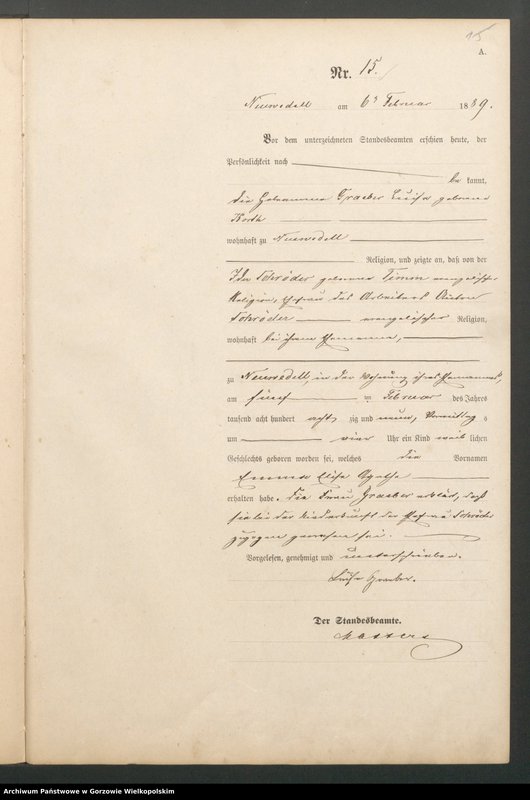 15
A.
Nr. 15.
Neuwedell am 6ten Februar 1889.
Vor dem unterzeichneten Standesbeamten erschien heute, der
Persönlichkeit nach
be kannt,
die Hebamme Graeber Luise geborene
Korth
wohnhaft zu Neuwedell
Religion, und zeigte an, daß von der
Ida Schröder geborene Timm evangelischer
Religion, Ehefrau des Arbeiters
Schröder evangelischer Religion,
wohnhaft bei ihrem Ehemanne,
zu Neuwedell, in der Wohnung ihres Ehemannes,
am fünf ten Februar des Jahres
tausend acht hundert acht zig und neun, Vormittag s
um vier Uhr ein Kind weib lichen
Geschlechts geboren worden sei, welches die Vornamen
Emma Elise Agathe
erhalten habe. Die Frau Graeber erklärt, daß
sie bei der Niederkunft der Ehefrau Schröder
zugegen gewesen sei.
Vorgelesen, genehmigt und unterschrieben.
Luise Graeber.
Der Standesbeamte.
Archiwum Państwowe w Gorzowie Wielkopolskim